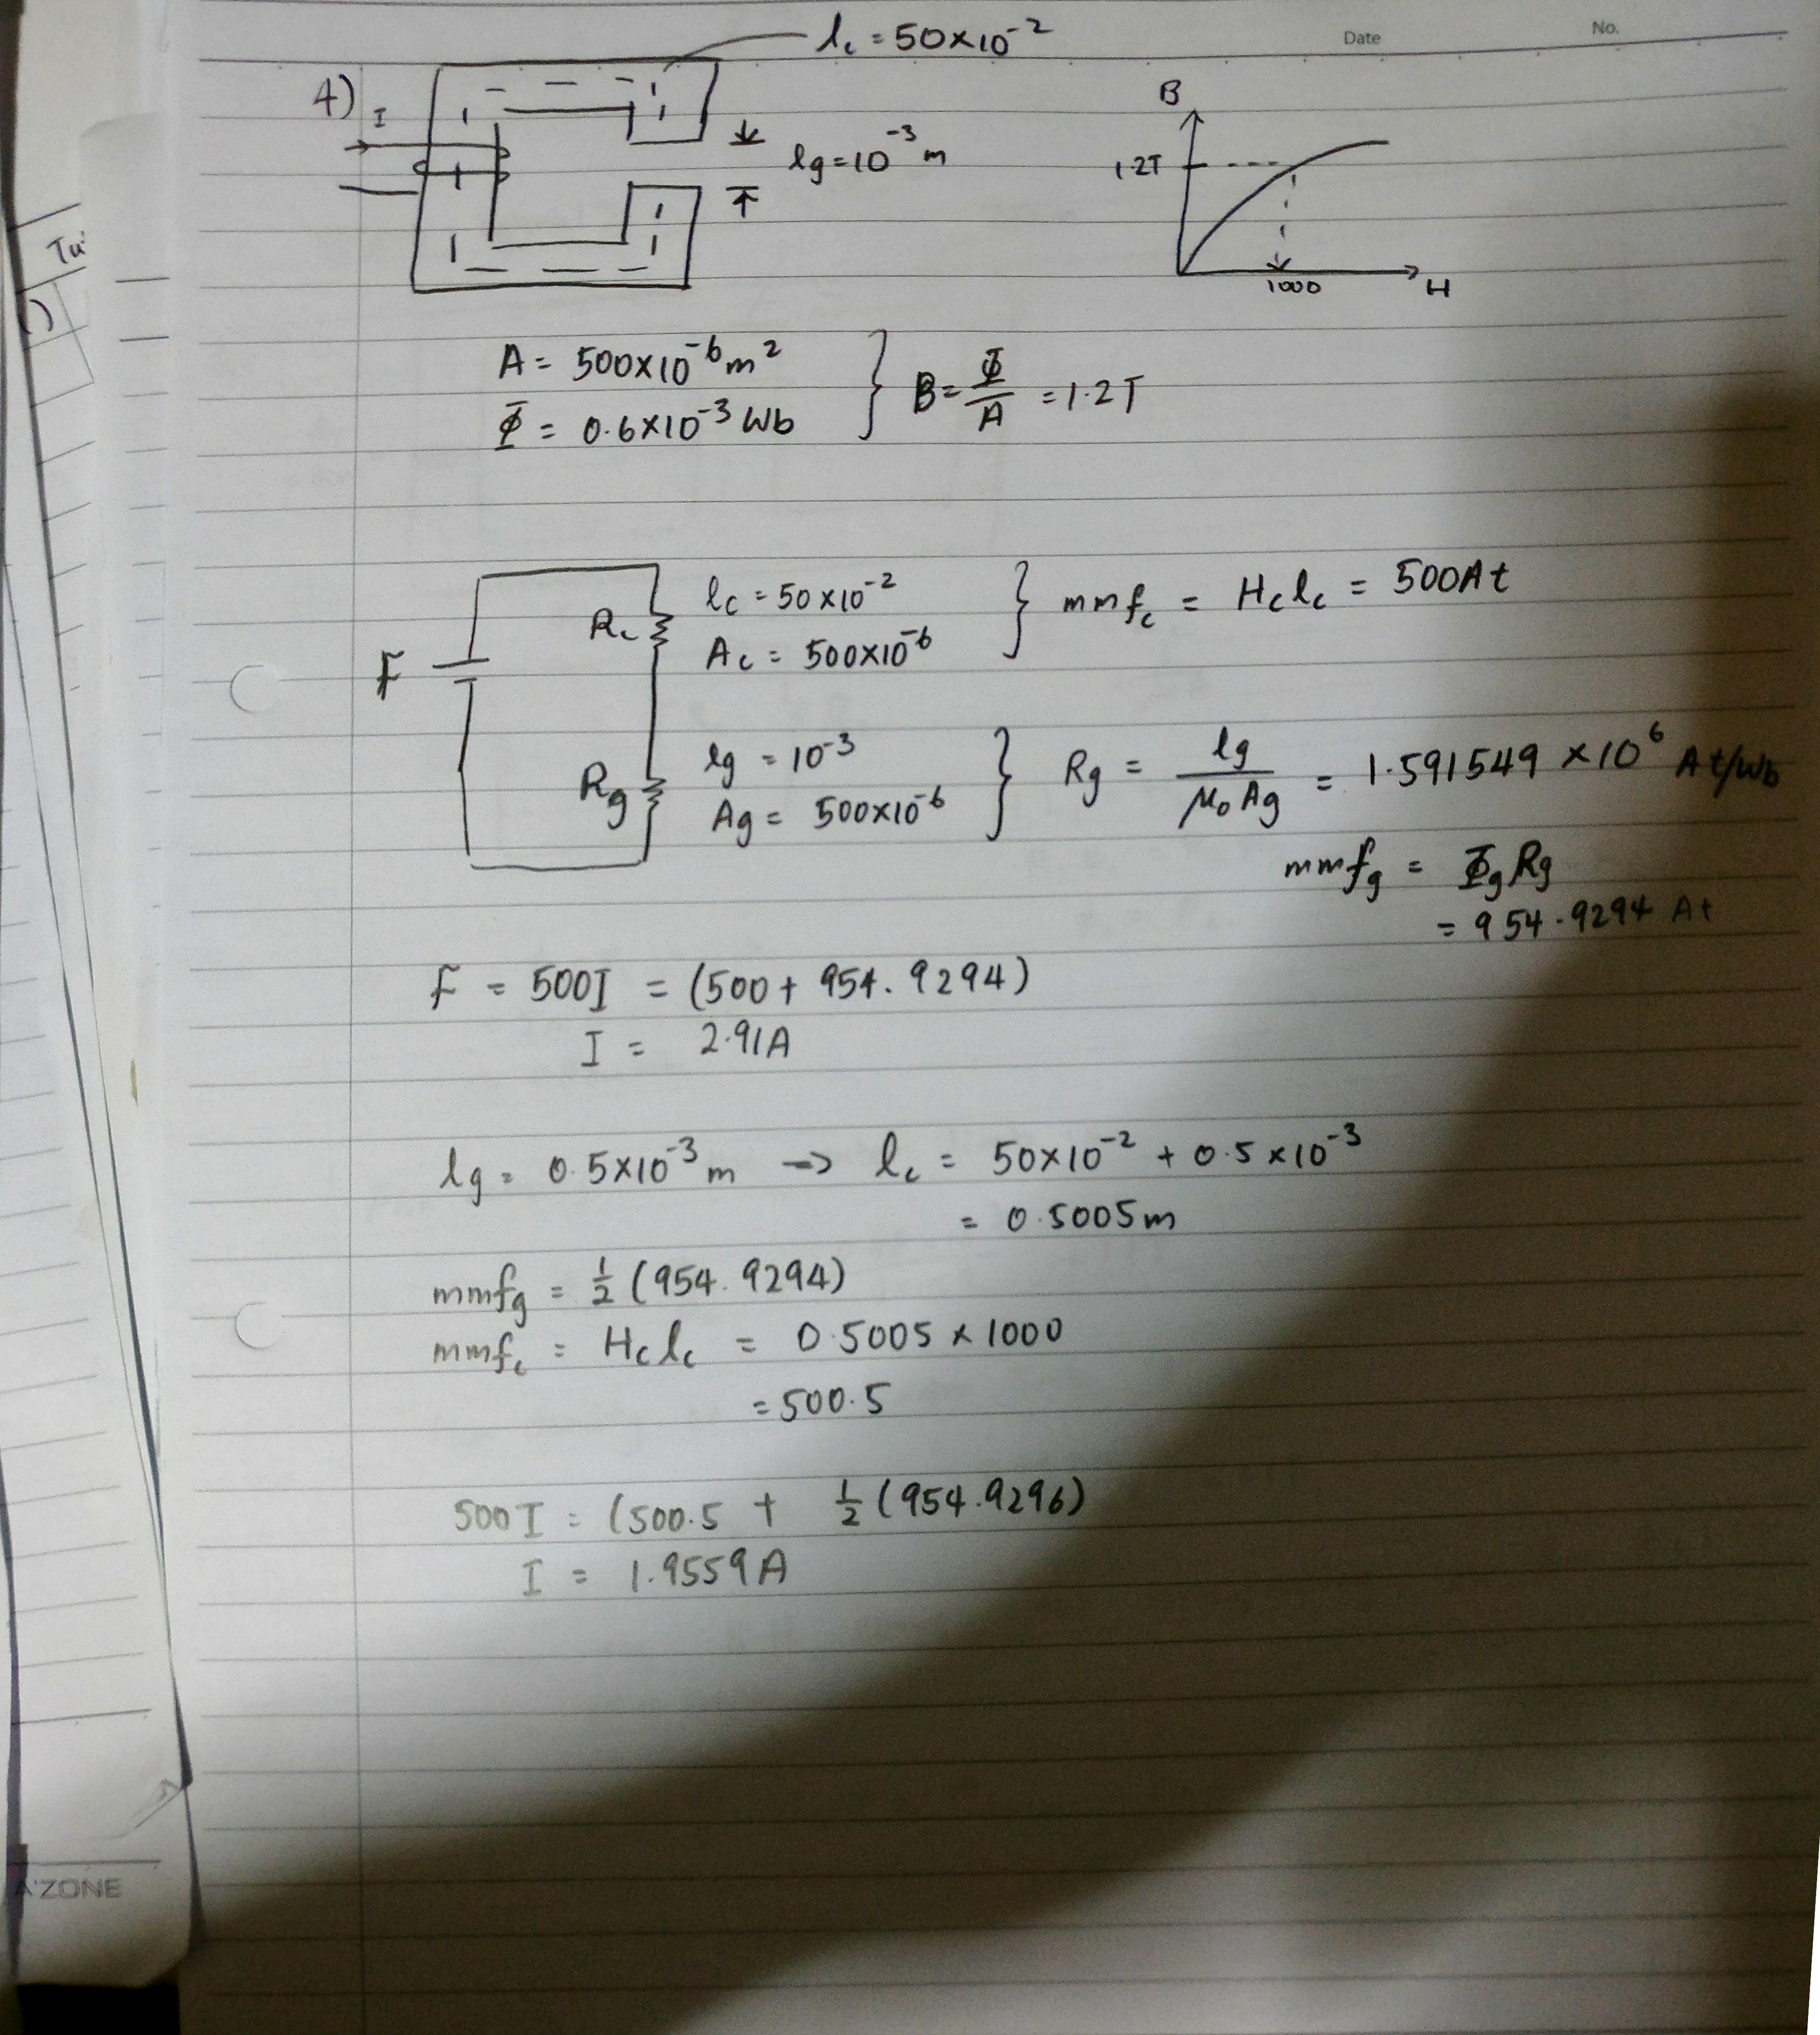 Date No.
l_c = 50×10^-2
4) I
lg = 10^-3 m
B
1.2T
1000 H
A = 500×10^-6 m^2
Φ = 0.6×10^-3 Wb
B = Φ/A = 1.2T
Tu
F
R_c
l_c = 50×10^-2
A_c = 500×10^-6
mmf_c = H_c l_c = 500At
R_g
lg = 10^-3
Ag = 500×10^-6
Rg = lg/μ_0 Ag = 1.591549 ×10^6 At/Wb
mmf_g = Φ_g Rg
= 954.9294 At
F = 500I = (500 + 954.9294)
I = 2.91A
lg = 0.5×10^-3 m → l_c = 50×10^-2 + 0.5×10^-3
= 0.5005m
mmf_g = 1/2 (954.9294)
mmf_c = H_c l_c = 0.5005 × 1000
= 500.5
500I = (500.5 + 1/2 (954.9296)
I = 1.9559A
A'ZONE